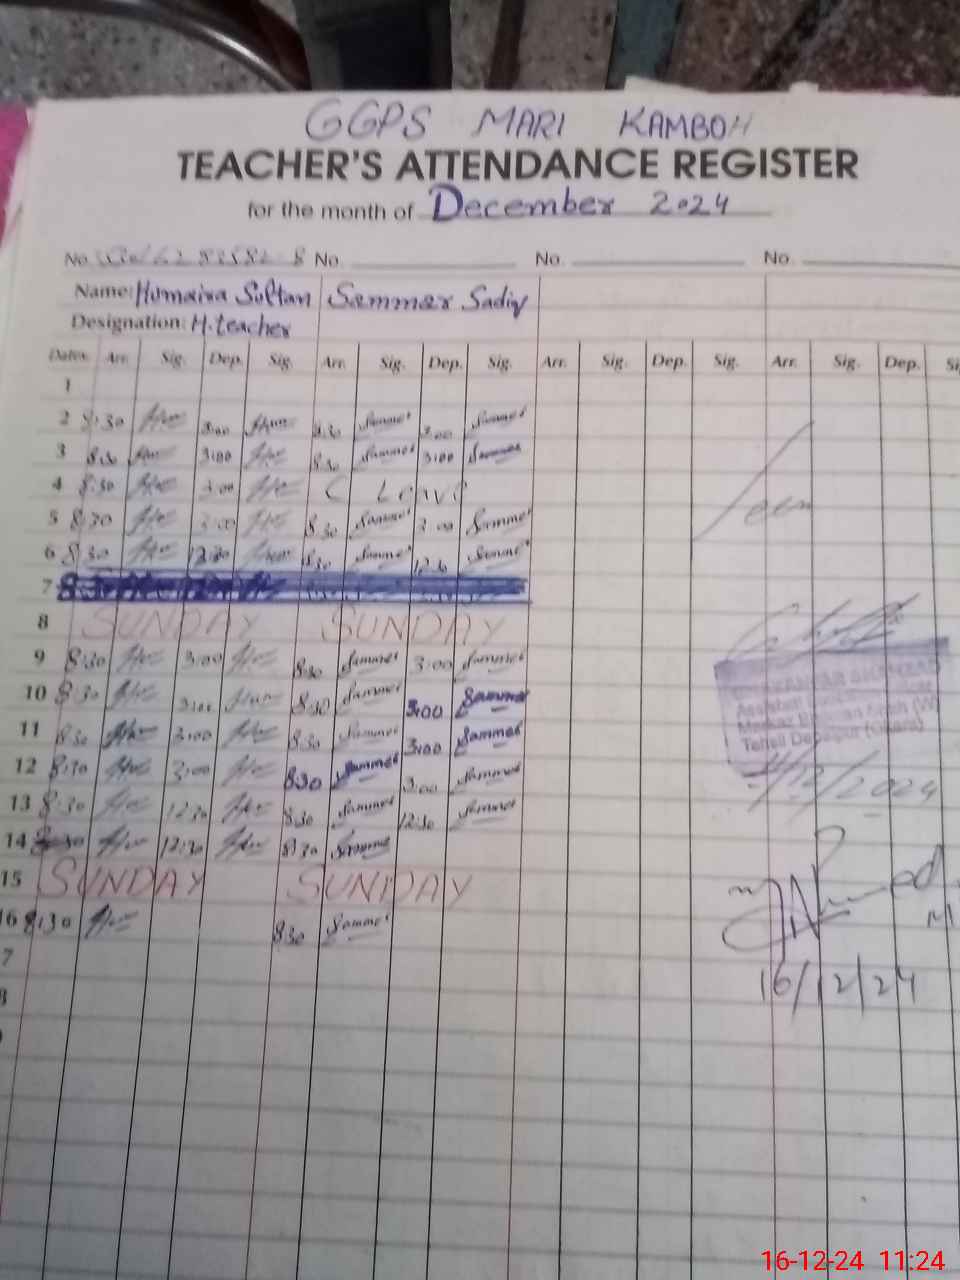 GGPS MARI KAMBOH
TEACHER'S ATTENDANCE REGISTER
for the month of December 2024
No. No. No. No.
Name: Humaira Sultan Sammar Sadiq
Designation: H.teacher
Dates Arr. Sig. Dep. Sig. Arr. Sig. Dep. Sig. Arr. Sig. Dep. Sig. Arr. Sig. Dep.
1
2 8:30 3:00 8:30 Sammar 3:00 Sammar
3 8:30 3:00 8:30 Sammar 3:00 Sammar
4 8:30 3:00 C Leave
5 8:30 3:00 8:30 Sammar 3:00 Sammar
6 8:30 12:30 8:30 Sammar 12:30 Sammar
7
8 SUNDAY SUNDAY
9 8:30 3:00 8:30 Sammar 3:00 Sammar
10 8:30 3:00 8:30 Sammar 3:00 Sammar
11 8:30 3:00 8:30 Sammar 3:00 Sammar
12 8:30 3:00 8:30 Sammar 3:00 Sammar
13 8:30 12:30 8:30 Sammar 12:30 Sammar
14 8:30 12:30 8:30 Sammar
15 SUNDAY SUNDAY
16 8:30 8:30 Sammar
7
8
Seen
Assistant
Markaz
Tehsil Depalpur (Okara)
/12/2024
16/12/24
16-12-24 11:24